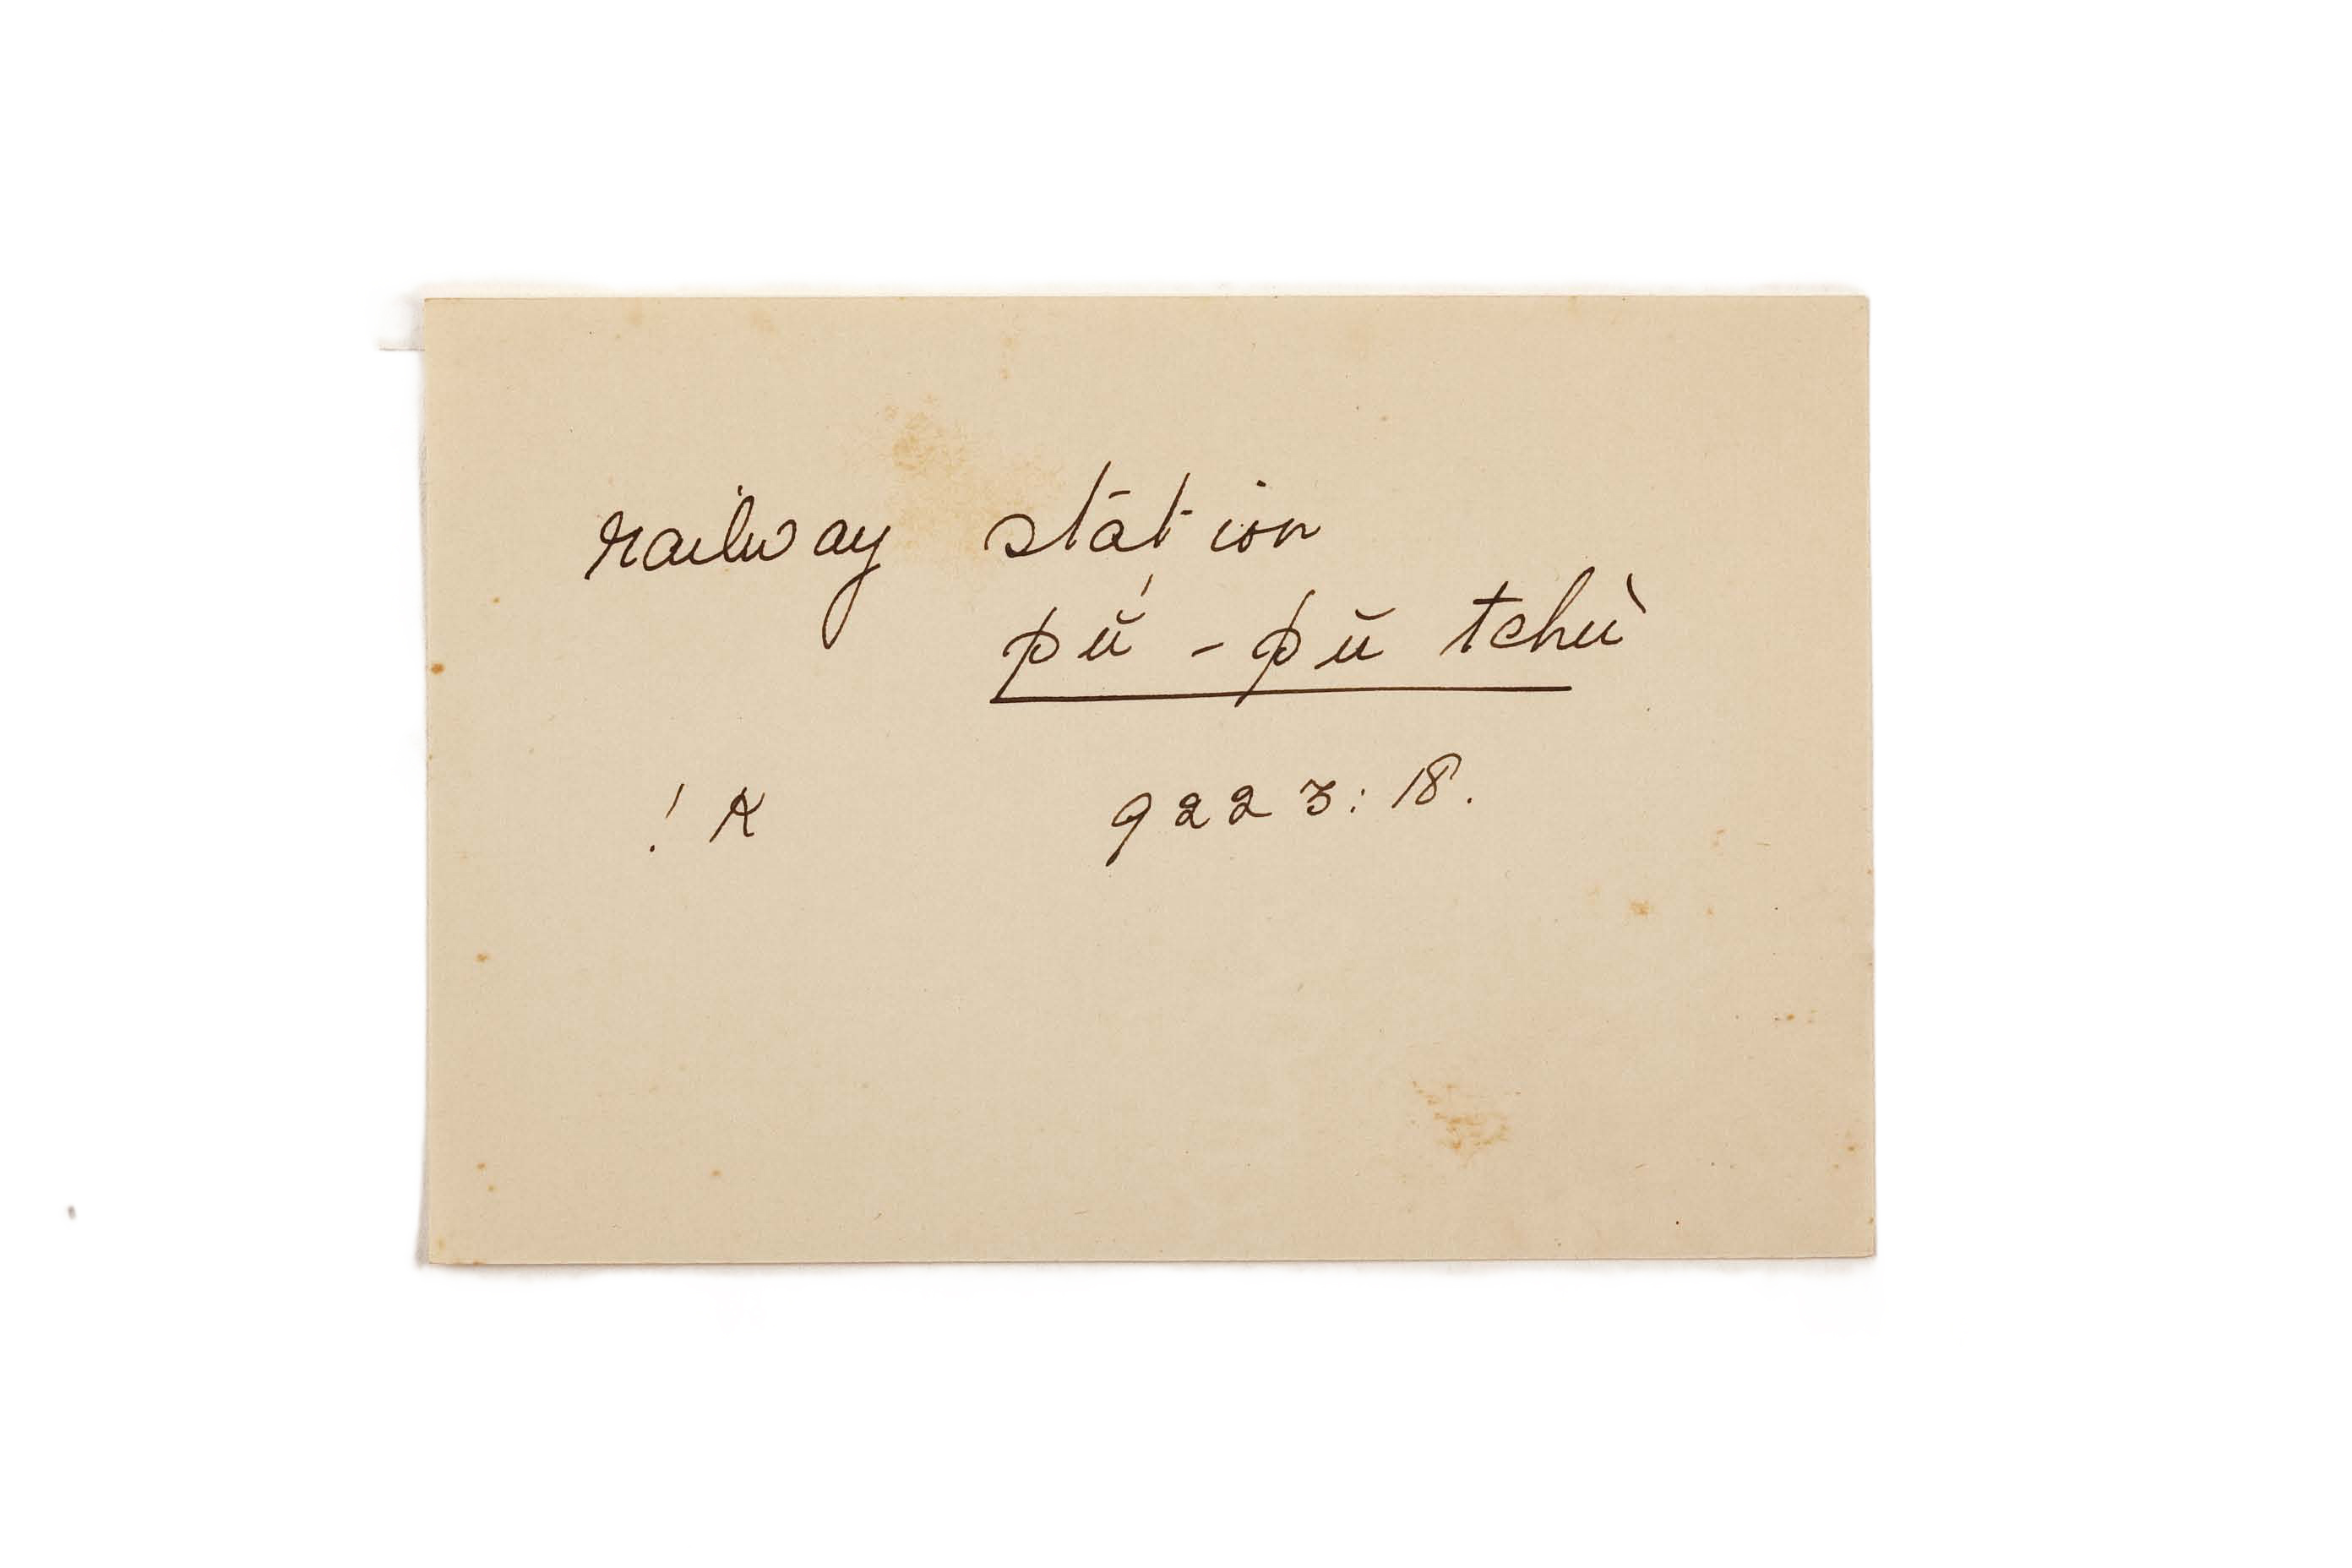 railway station
pŭ́ - pŭ tchù
! K 9223: 18.